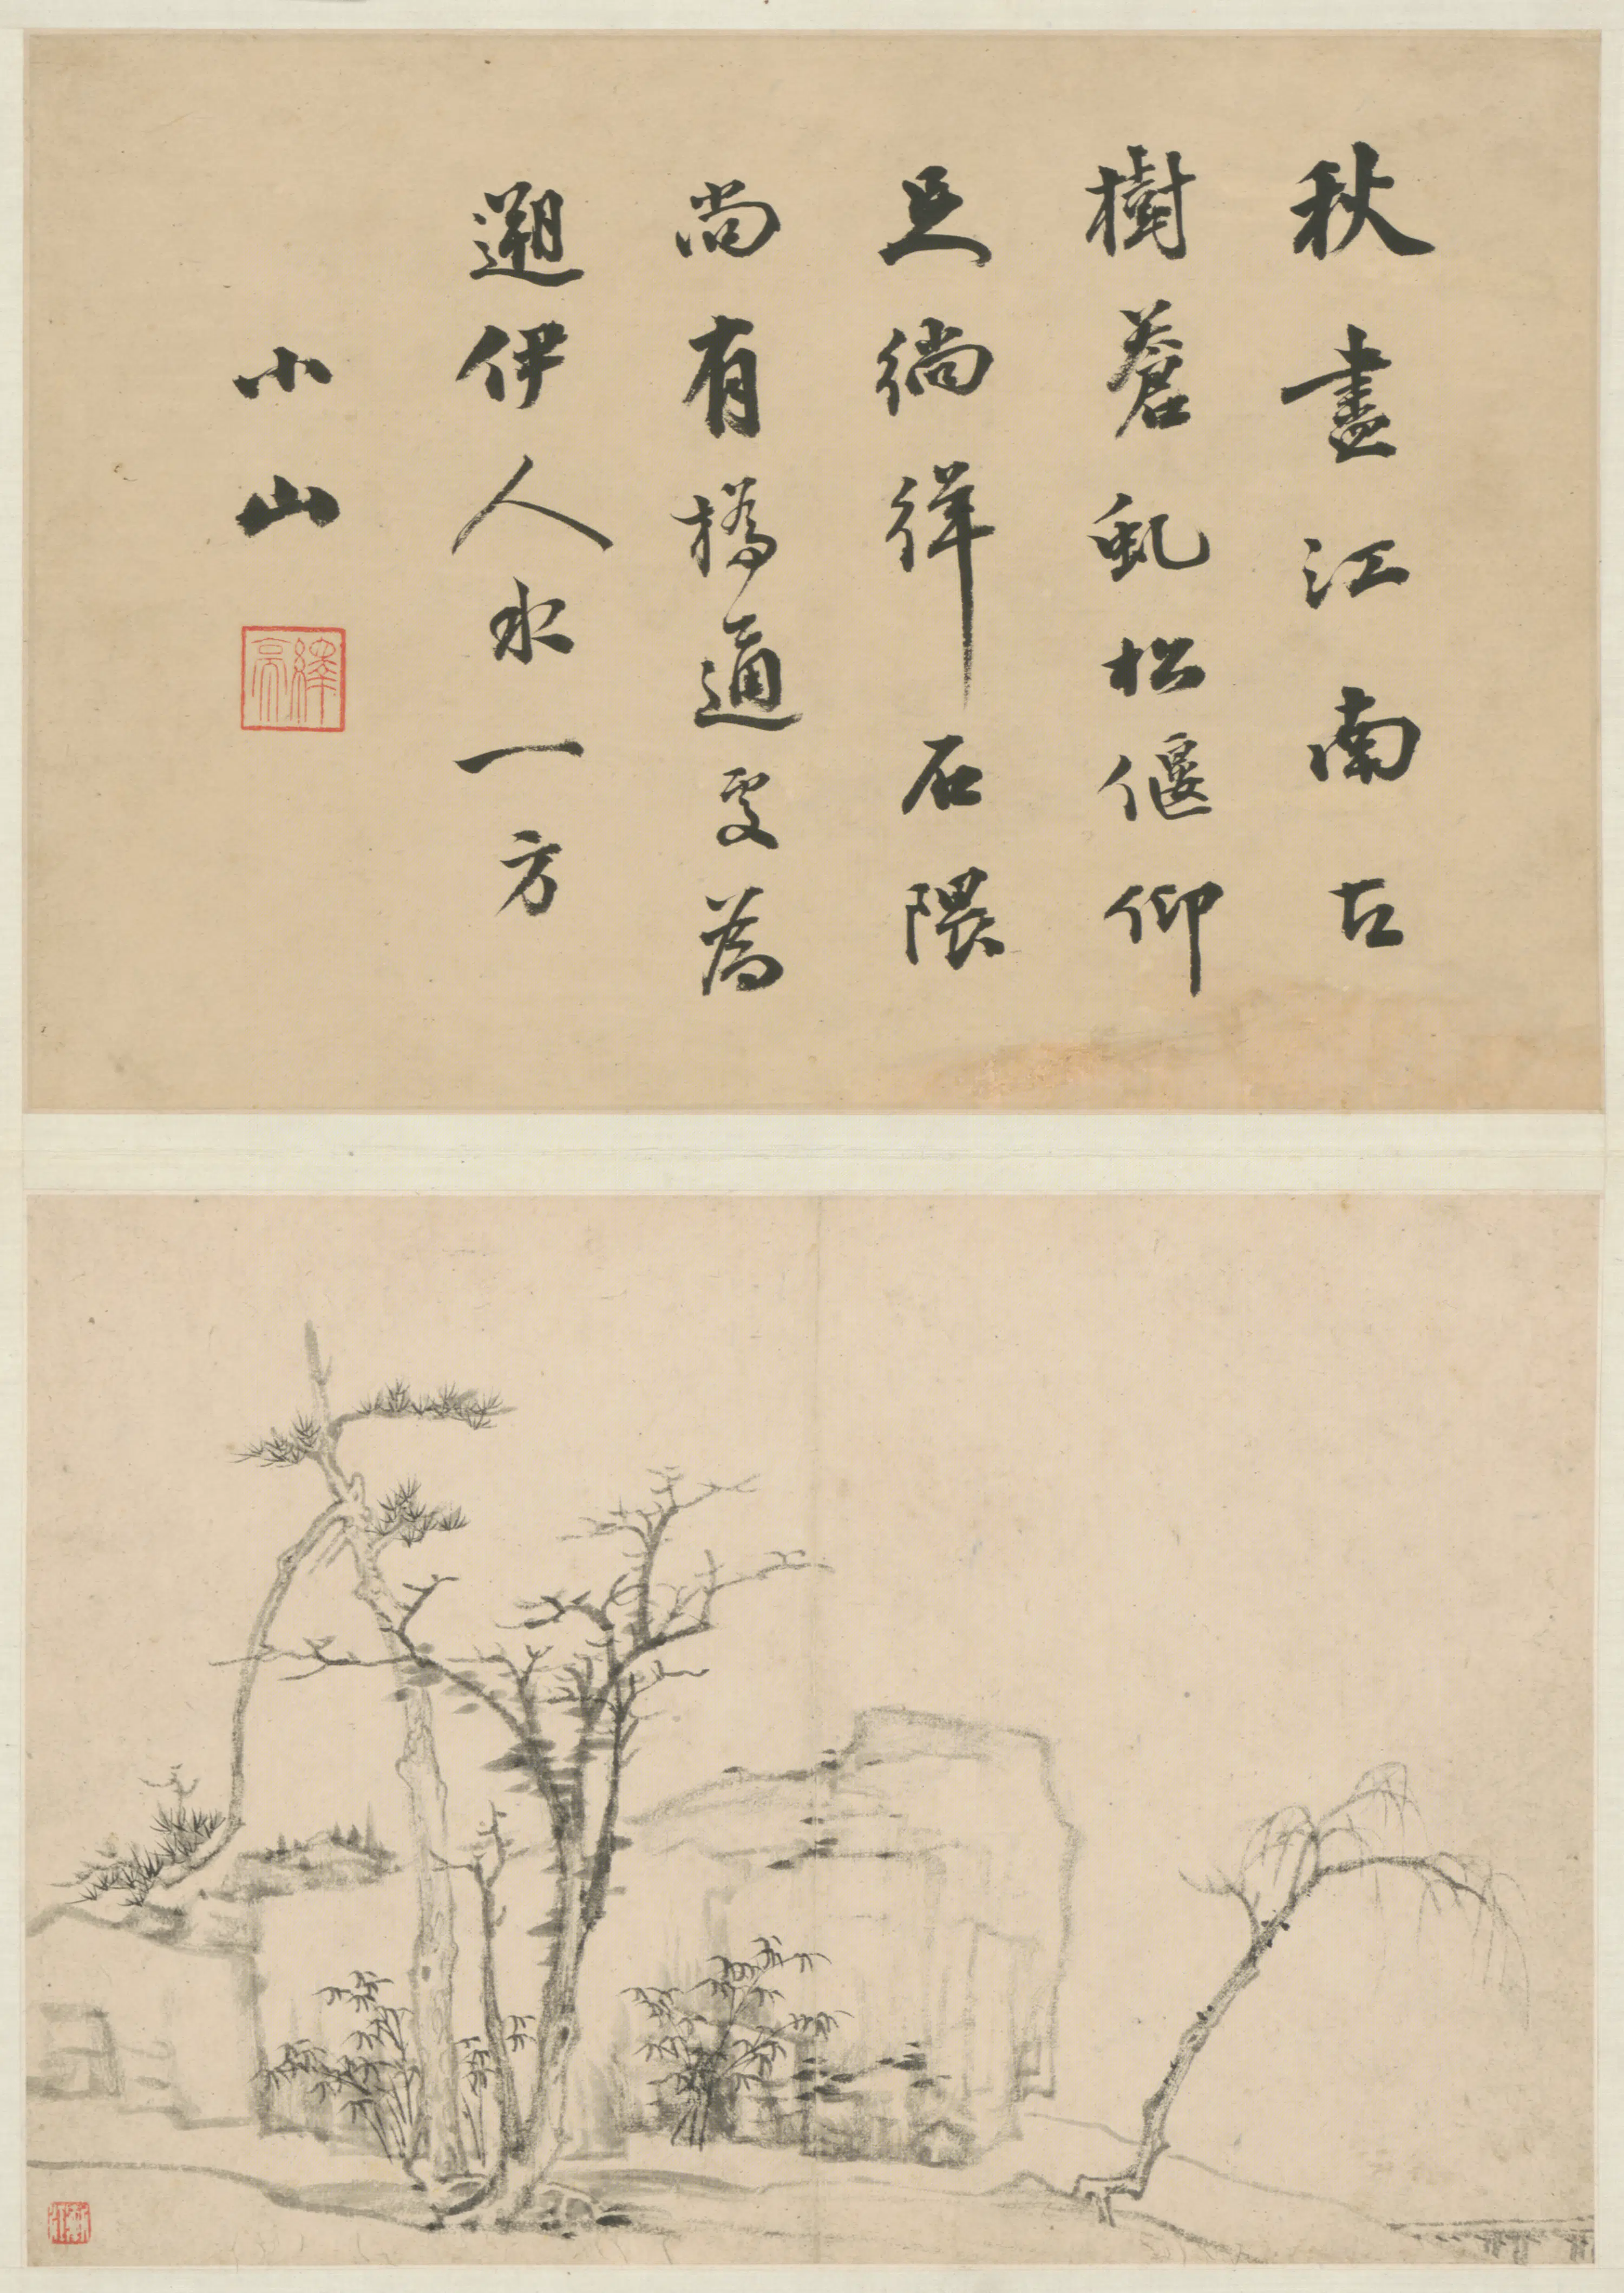 秋盡江南古
樹蒼虬松偃仰
足徜徉石隈
尚有橋通處為
遡伊人水一方
小山
繹亮